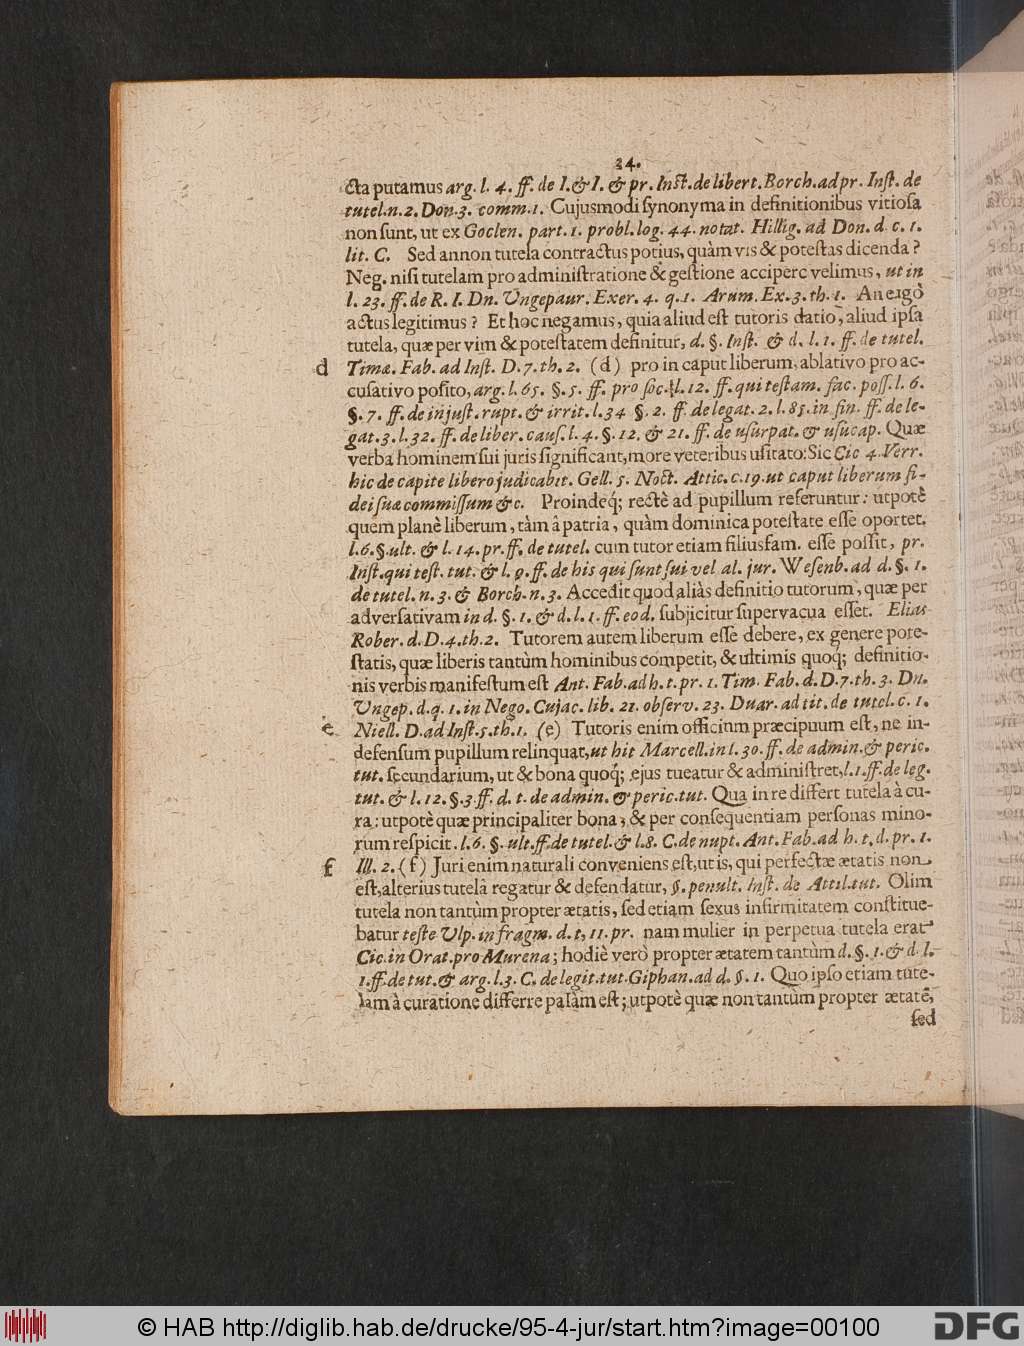 34.
cta putamus arg. l. 4. ff. de I. & I. & pr. Inst. de libert. Borch. ad pr. Inst. de
tutel. n. 2. Don. 3. comm. 1. Cujusmodi synonyma in definitionibus vitiosa
non sunt, ut ex Goclen. part. 1. probl. log. 44. notat. Hillig. ad Don. d. c. 1.
lit. C. Sed annon tutela contractus potius, quàm vis & potestas dicenda?
Neg. nisi tutelam pro administratione & gestione accipere velimus, ut in
l. 23. ff. de R. I. Dn. Ungepaur. Exer. 4. q. 1. Arum. Ex. 3. th. 1. An ergò
actus legitimus? Et hoc negamus, quia aliud est tutoris datio, aliud ipsa
tutela, quæ per vim & potestatem definitur, d. §. Inst. & d. l. 1. ff. de tutel.
d Timæ. Fab. ad Inst. D. 7. th. 2. (d) pro in caput liberum, ablativo pro ac-
cusativo posito, arg. l. 65. §. 5. ff. pro soc. l. 12. ff. qui testam. fac. poss. l. 6.
§. 7. ff. de injust. rupt. & irrit. l. 34 §. 2. ff. de legat. 2. l. 85. in fin. ff. de le-
gat. 3. l. 32. ff. de liber. caus. l. 4. §. 12. & 21. ff. de usurpat. & usucap. Quæ
verba hominem sui juris significant, more veteribus usitato: Sic Cic 4. Verr.
hic de capite libero judicabit. Gell. 5. Noct. Attic. c. 19. ut caput liberum fi-
dei suæ commissum &c. Proindeq́; rectè ad pupillum referuntur: utpotè
quem planè liberum, tàm â patria, quàm dominica potestate esse oportet.
l. 6. §. ult. & l. 14. pr. ff. de tutel. cum tutor etiam filiusfam. esse possit, pr.
Inst. qui test. tut. & l. 9. ff. de his qui sunt sui vel al. jur. Wesenb. ad d. §. 1.
de tutel. n. 3. & Borch. n. 3. Accedit quod aliàs definitio tutorum, quæ per
adversativam in d. §. 1. & d. l. 1. ff. eod. subjicitur supervacua esset. Elias
Rober. d. D. 4. th. 2. Tutorem autem liberum esse debere, ex genere pote-
statis, quæ liberis tantùm hominibus competit, & ultimis quoq; definitio-
nis verbis manifestum est Ant. Fab. ad h. t. pr. 1. Tim. Fab. d. D. 7. th. 3. Dn.
Ungep. d. q. 1. in Nego. Cujac. lib. 21. observ. 23. Duar. ad tit. de tutel. c. 1.
e Niell. D. ad Inst. 5. th. 1. (e) Tutoris enim officium præcipuum est, ne in-
defensum pupillum relinquat, ut hit Marcell. in l. 30. ff. de admin. & peric.
tut. secundarium, ut & bona quoq́; ejus tueatur & administret, l. 1. ff. de leg.
tut. & l. 12. §. 3. ff. d. t. de admin. & peric. tut. Qua in re differt tutela à cu-
ra: utpotè quæ principaliter bona, & per consequentiam personas mino-
rum respicit. l. 6. §. ult. ff. de tutel. & l. 8. C. de nupt. Ant. Fab. ad h. t. d. pr. 1.
f Ill. 2. (f) Juri enim naturali conveniens est, ut is, qui perfectæ ætatis non
est, alterius tutelà regatur & defendatur, §. penult. Inst. de Attil. tut. Olim
tutela non tantùm propter ætatis, sed etiam sexus infirmitatem constitue-
batur teste Ulp. in fragm. d. t, 11. pr. nam mulier in perpetua tutela erat
Cic. in Orat. pro Murena; hodiè verò propter ætatem tantùm d. §. 1. & d. l.
1. ff. de tut. & arg. l. 3. C. de legit. tut. Giphan. ad d. §. 1. Quo ipso etiam tute-
lam à curatione differre palàm est; utpotè quæ non tantùm propter ætatē,
sed
© HAB http://diglib.hab.de/drucke/95-4-jur/start.htm?image=00100
DFG